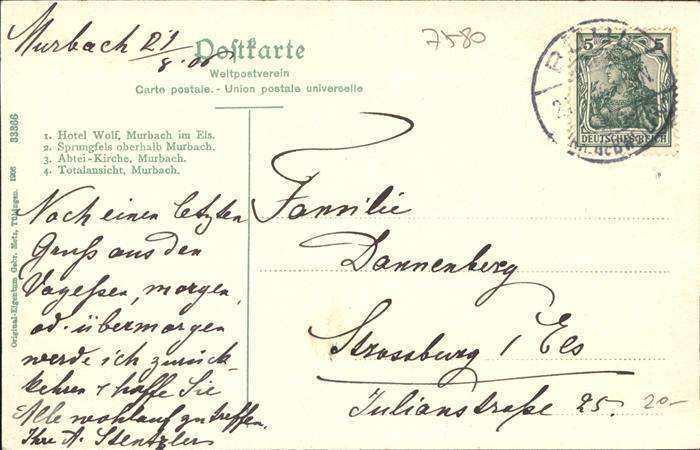 Murbach 21/8.06
7580
Postkarte
Weltpostverein
Carte postale. - Union postale universelle
5 5
DEUTSCHES REICH
1. Hotel Wolf, Murbach im Els.
2. Sprungfels oberhalb Murbach.
3. Abtei-Kirche, Murbach.
4. Totalansicht, Murbach.
33366
Original-Eigentum Gebr. Metz, Tübingen. 1906
Noch einen letzten
Gruß aus den
Vogesen, morgen
od. übermorgen
werde ich zurück-
kehren & hoffe Sie
Alle wohlauf zu treffen.
Ihre A. Stentzler
Familie
Dannenberg
Strossburg i Els
Julianstraße 25.
20-